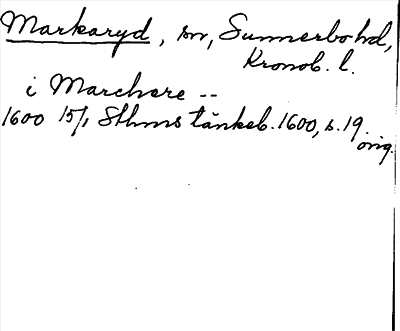 Markaryd, sn, Sunnerbo hd,
Kronob. l.
i Marchere --
1600 15/1 Sthms tänkeb. 1600, s. 19.
orig.